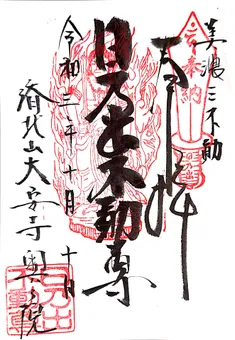 美濃三不動
奉納
奉拝
日乃出不動尊
令和三年十月十日
済北山大安寺奥之院